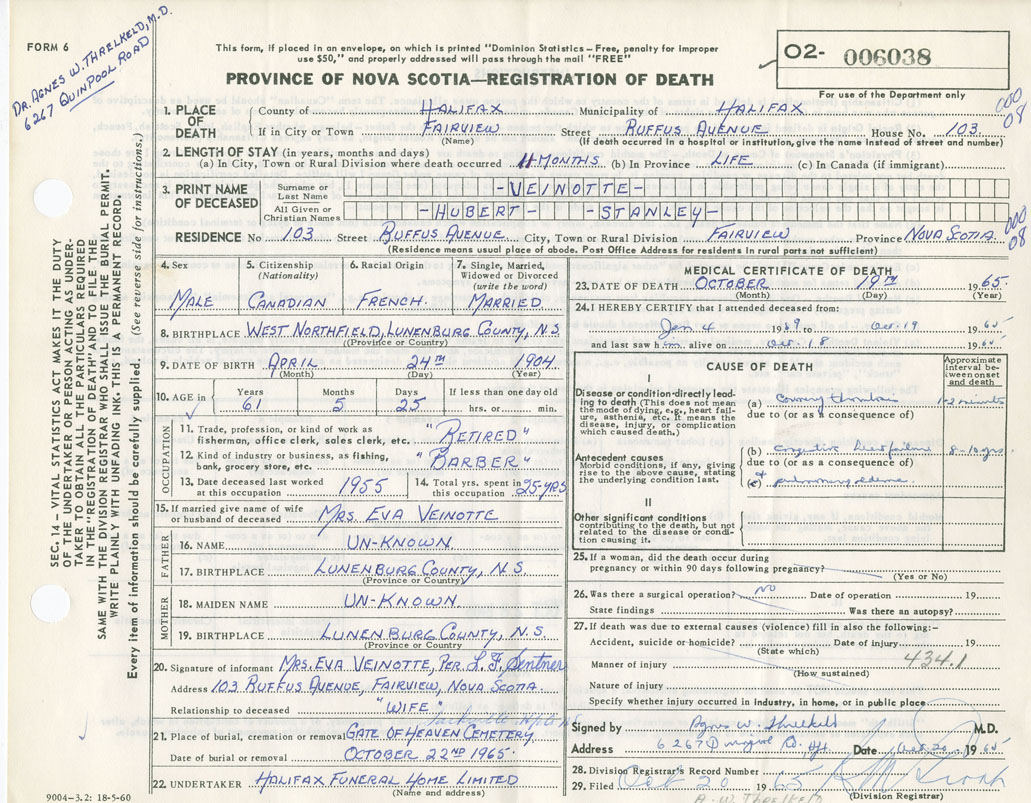 FORM 6
DR. AGNES W. THRELKELD, M.D.
6267 QUINPOOL ROAD
This form, if placed in an envelope, on which is printed "Dominion Statistics – Free, penalty for improper
use $50," and properly addressed will pass through the mail "FREE"
PROVINCE OF NOVA SCOTIA—REGISTRATION OF DEATH
02- 006038
For use of the Department only
000
08
1. PLACE OF DEATH County of HALIFAX Municipality of HALIFAX
If in City or Town FAIRVIEW Street RUFFUS AVENUE House No. 103
(Name) (If death occurred in a hospital or institution, give the name instead of street and number)
2. LENGTH OF STAY (in years, months and days)
(a) In City, Town or Rural Division where death occurred 11 MONTHS (b) In Province LIFE (c) In Canada (if immigrant)
3. PRINT NAME OF DECEASED Surname or Last Name -VEINOTTE-
All Given or Christian Names -HUBERT- -STANLEY-
000
08
RESIDENCE No 103 Street RUFFUS AVENUE City, Town or Rural Division FAIRVIEW Province NOVA SCOTIA
(Residence means usual place of abode. Post Office Address for residents in rural parts not sufficient)
4. Sex
MALE
5. Citizenship
(Nationality)
CANADIAN
6. Racial Origin
FRENCH.
7. Single, Married,
Widowed or Divorced
(write the word)
MARRIED
8. BIRTHPLACE WEST NORTHFIELD, LUNENBURG COUNTY, N.S.
(Province or Country)
9. DATE OF BIRTH APRIL 24TH 1904
(Month) (Day) (Year)
10. AGE in Years Months Days If less than one day old
61 5 25 hrs. or min.
OCCUPATION
11. Trade, profession or kind of work as
fisherman, office clerk, sales clerk, etc. "RETIRED"
12. Kind of industry or business, as fishing,
bank, grocery store, etc. "BARBER"
13. Date deceased last worked
at this occupation 1955
14. Total yrs. spent in
this occupation 25-YRS
15. If married give name of wife
or husband of deceased MRS. EVA VEINOTTE
FATHER
16. NAME UN-KNOWN
17. BIRTHPLACE LUNENBURG COUNTY, N.S.
(Province or Country)
MOTHER
18. MAIDEN NAME UN-KNOWN
19. BIRTHPLACE LUNENBURG COUNTY, N.S.
(Province or Country
20. Signature of informant MRS. EVA VEINOTTE, PER L. F. Sentner
Address 103 RUFFUS AVENUE, FAIRVIEW, NOVA SCOTIA.
Relationship to deceased "WIFE"
21. Place of burial, cremation or removal GATE OF HEAVEN CEMETERY
Date of burial or removal OCTOBER 22ND 1965.
22. UNDERTAKER HALIFAX FUNERAL HOME LIMITED
(Name and address)
9004-3.2: 18-5-60
MEDICAL CERTIFICATE OF DEATH
23. DATE OF DEATH OCTOBER 19TH 1965.
(Month) (Day) (Year)
24. I HEREBY CERTIFY that I attended deceased from:
Jan 4 19 to Oct. 19 1965
and last saw him alive on Oct. 18 1965
CAUSE OF DEATH
Approximate
interval be-
tween onset
and death
I
Disease or condition directly lead-
ing to death (This does not mean
the mode of dying, e.g., heart fail-
ure, asthenia, etc. It means the
disease, injury, or complication
which caused death.)
(a) Coronary thrombosis 1-2 minutes
due to (or as a consequence of)
Antecedent causes
Morbid conditions, if any, giving
rise to the above cause, stating
the underlying condition last.
(b) Congestive heart failure 8-10 yrs.
due to (or as a consequence of)
(c) & pulmonary edema.
II
Other significant conditions
contributing to the death, but not
related to the disease or condi-
tion causing it.
25. If a woman, did the death occur during
pregnancy or within 90 days following pregnancy?
(Yes or No)
26. Was there a surgical operation? no Date of operation 19
State findings Was there an autopsy?
27. If death was due to external causes (violence) fill in also the following:–
Accident, suicide or homicide? Date of injury 19
(State which)
434.1
Manner of injury
(How sustained)
Nature of injury
Specify whether injury occurred in industry, in home, or in public place
Signed by Agnes W. Threlkeld M.D.
Address 6267 Quinpool Rd. Hfx Date Oct. 20 1965
28. Division Registrar's Record Number
29. Filed Oct 20 1965
(Division Registrar)
A. W. Threlkeld
SEC. 14 – VITAL STATISTICS ACT MAKES IT THE DUTY
OF THE UNDERTAKER OR PERSON ACTING AS UNDER-
TAKER TO OBTAIN ALL THE PARTICULARS REQUIRED
IN THE "REGISTRATION OF DEATH" AND TO FILE THE
SAME WITH THE DIVISION REGISTRAR WHO SHALL ISSUE THE BURIAL PERMIT.
WRITE PLAINLY WITH UNFADING INK. THIS IS A PERMANENT RECORD.
Every item of information should be carefully supplied. (See reverse side for instructions.)